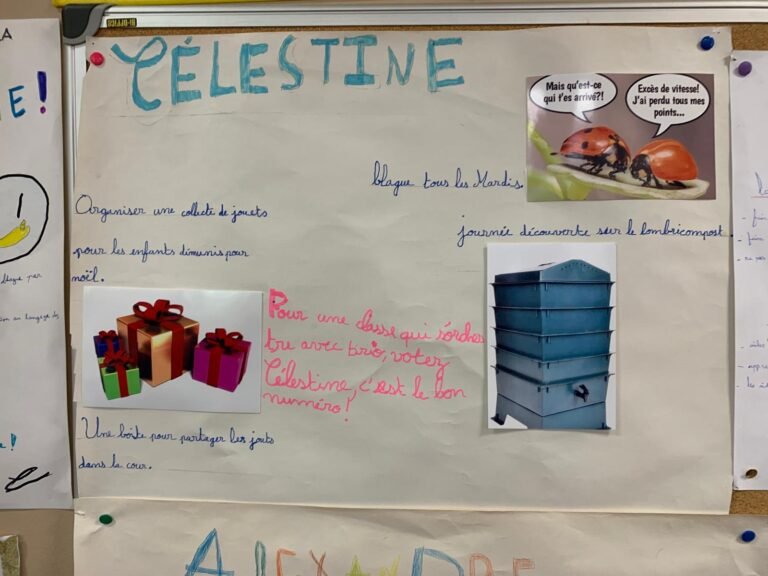 BI-OFFICE
LA
E!
CÉLESTINE
Mais qu'est-ce
qui t'es arrivé?!
Excès de vitesse!
J'ai perdu tous mes
points...
blague tous les Mardis.
Organiser une collecte de jouets
pour les enfants démunis pour
noël.
journée découverte sur le lombricompost
Pour une classe qui s'orches
tre avec brio, votez
Célestine, c'est le bon
numéro!
Une boîte pour partager les jouets
dans la cour.
ALEXANDRE